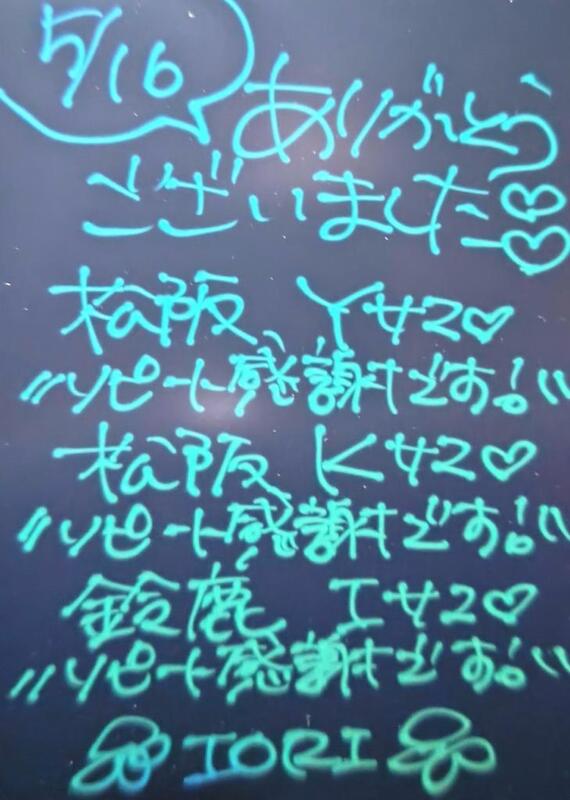 5/16
ありがとう
ございました♡♡
松阪 Yサマ♡
"リピート感謝です!"
松阪 Kサマ♡
"リピート感謝です!"
鈴鹿 Iサマ♡
"リピート感謝です!"
IORI